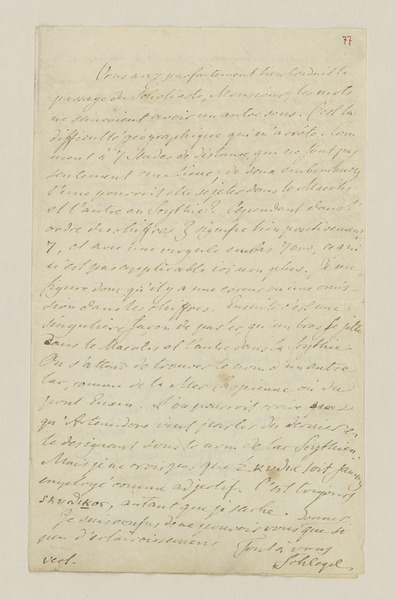 77
Vous avez parfaitement bien traduit le
passage du Scholiaste, Monsieur, les mots
ne sauroient avoir un autre sens. C'est la
difficulté géographique qui m'arrête. Com-
ment à 7 stades de distance, que ne font pas
seulement une lieue, de deux embouchures
l'une pourroit elle se jeter dans le Maeotis
et l'autre en Scythie? Cependant dans l'
ordre des chiffres ζ signifie bien positivement
7, et avec une virgule en bas 7000, ce qui
n'est pas applicable ici non plus. Je me
figure donc qu'il y a une erreur ou une omis-
sion dans les chiffres. Ensuite c'est une
singulière façon de parler qu'un bras se jette
dans le Maeotis et l'autre dans la Scythie.
On s'attend de trouver le nom d'un autre
lac, comme de la Mer Caspienne ou du
pont Euxin. L'on pourroit croire
qu'Artemidore veut parler du dernier en
le désignant sous le nom de lac Scythien.
Mais je ne crois pas que Σκύθα soit jamais
employé comme adjectif. C'est toujours
Σκυθικός, autant que je sache.
Je suis confus de ne pouvoir vous donner que si
peu d'éclaircissemens
Tout à vous
Schlegel